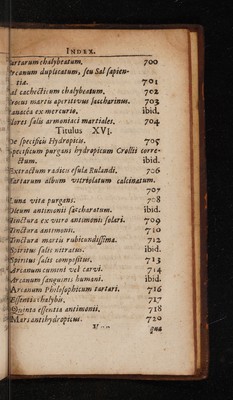 INDEX.
Tartarum chalybeatum, 700
Arcanum duplicatum, seu Sal sapien-
tiæ. 701
Sal cachecticum chalybeatum. 702
Crocus martis aperitivus saccharinus. 703
Panacæa ex mercurio. ibid.
Flores salis armoniaci martiales. 704
Titulus XVI.
De specificis Hydropicis. 705
Specificum purgans hydropicum Crollii corre-
ctum. ibid.
Extractum radicis esulæ Rulandi. 706
Tartarum album vitriolatum calcinatum.
707
Luna vitæ purgans. 708
Oleum antimonii saccharatum. ibid.
Tinctura ex vitro antimonii solari. 709
Tinctura antimonii. 710
Tinctura martis rubicundissima. 712
Spiritus salis nitratus. ibid.
Spiritus salis compositus. 713
Arcanum cumini vel carvi. 714
Arcanum sanguinis humani. ibid.
Arcanum Philosophicum tartari. 716
Essentia chalybis. 717
Quinta essentia antimonii. 718
Mars antihydropicus. 720
qua